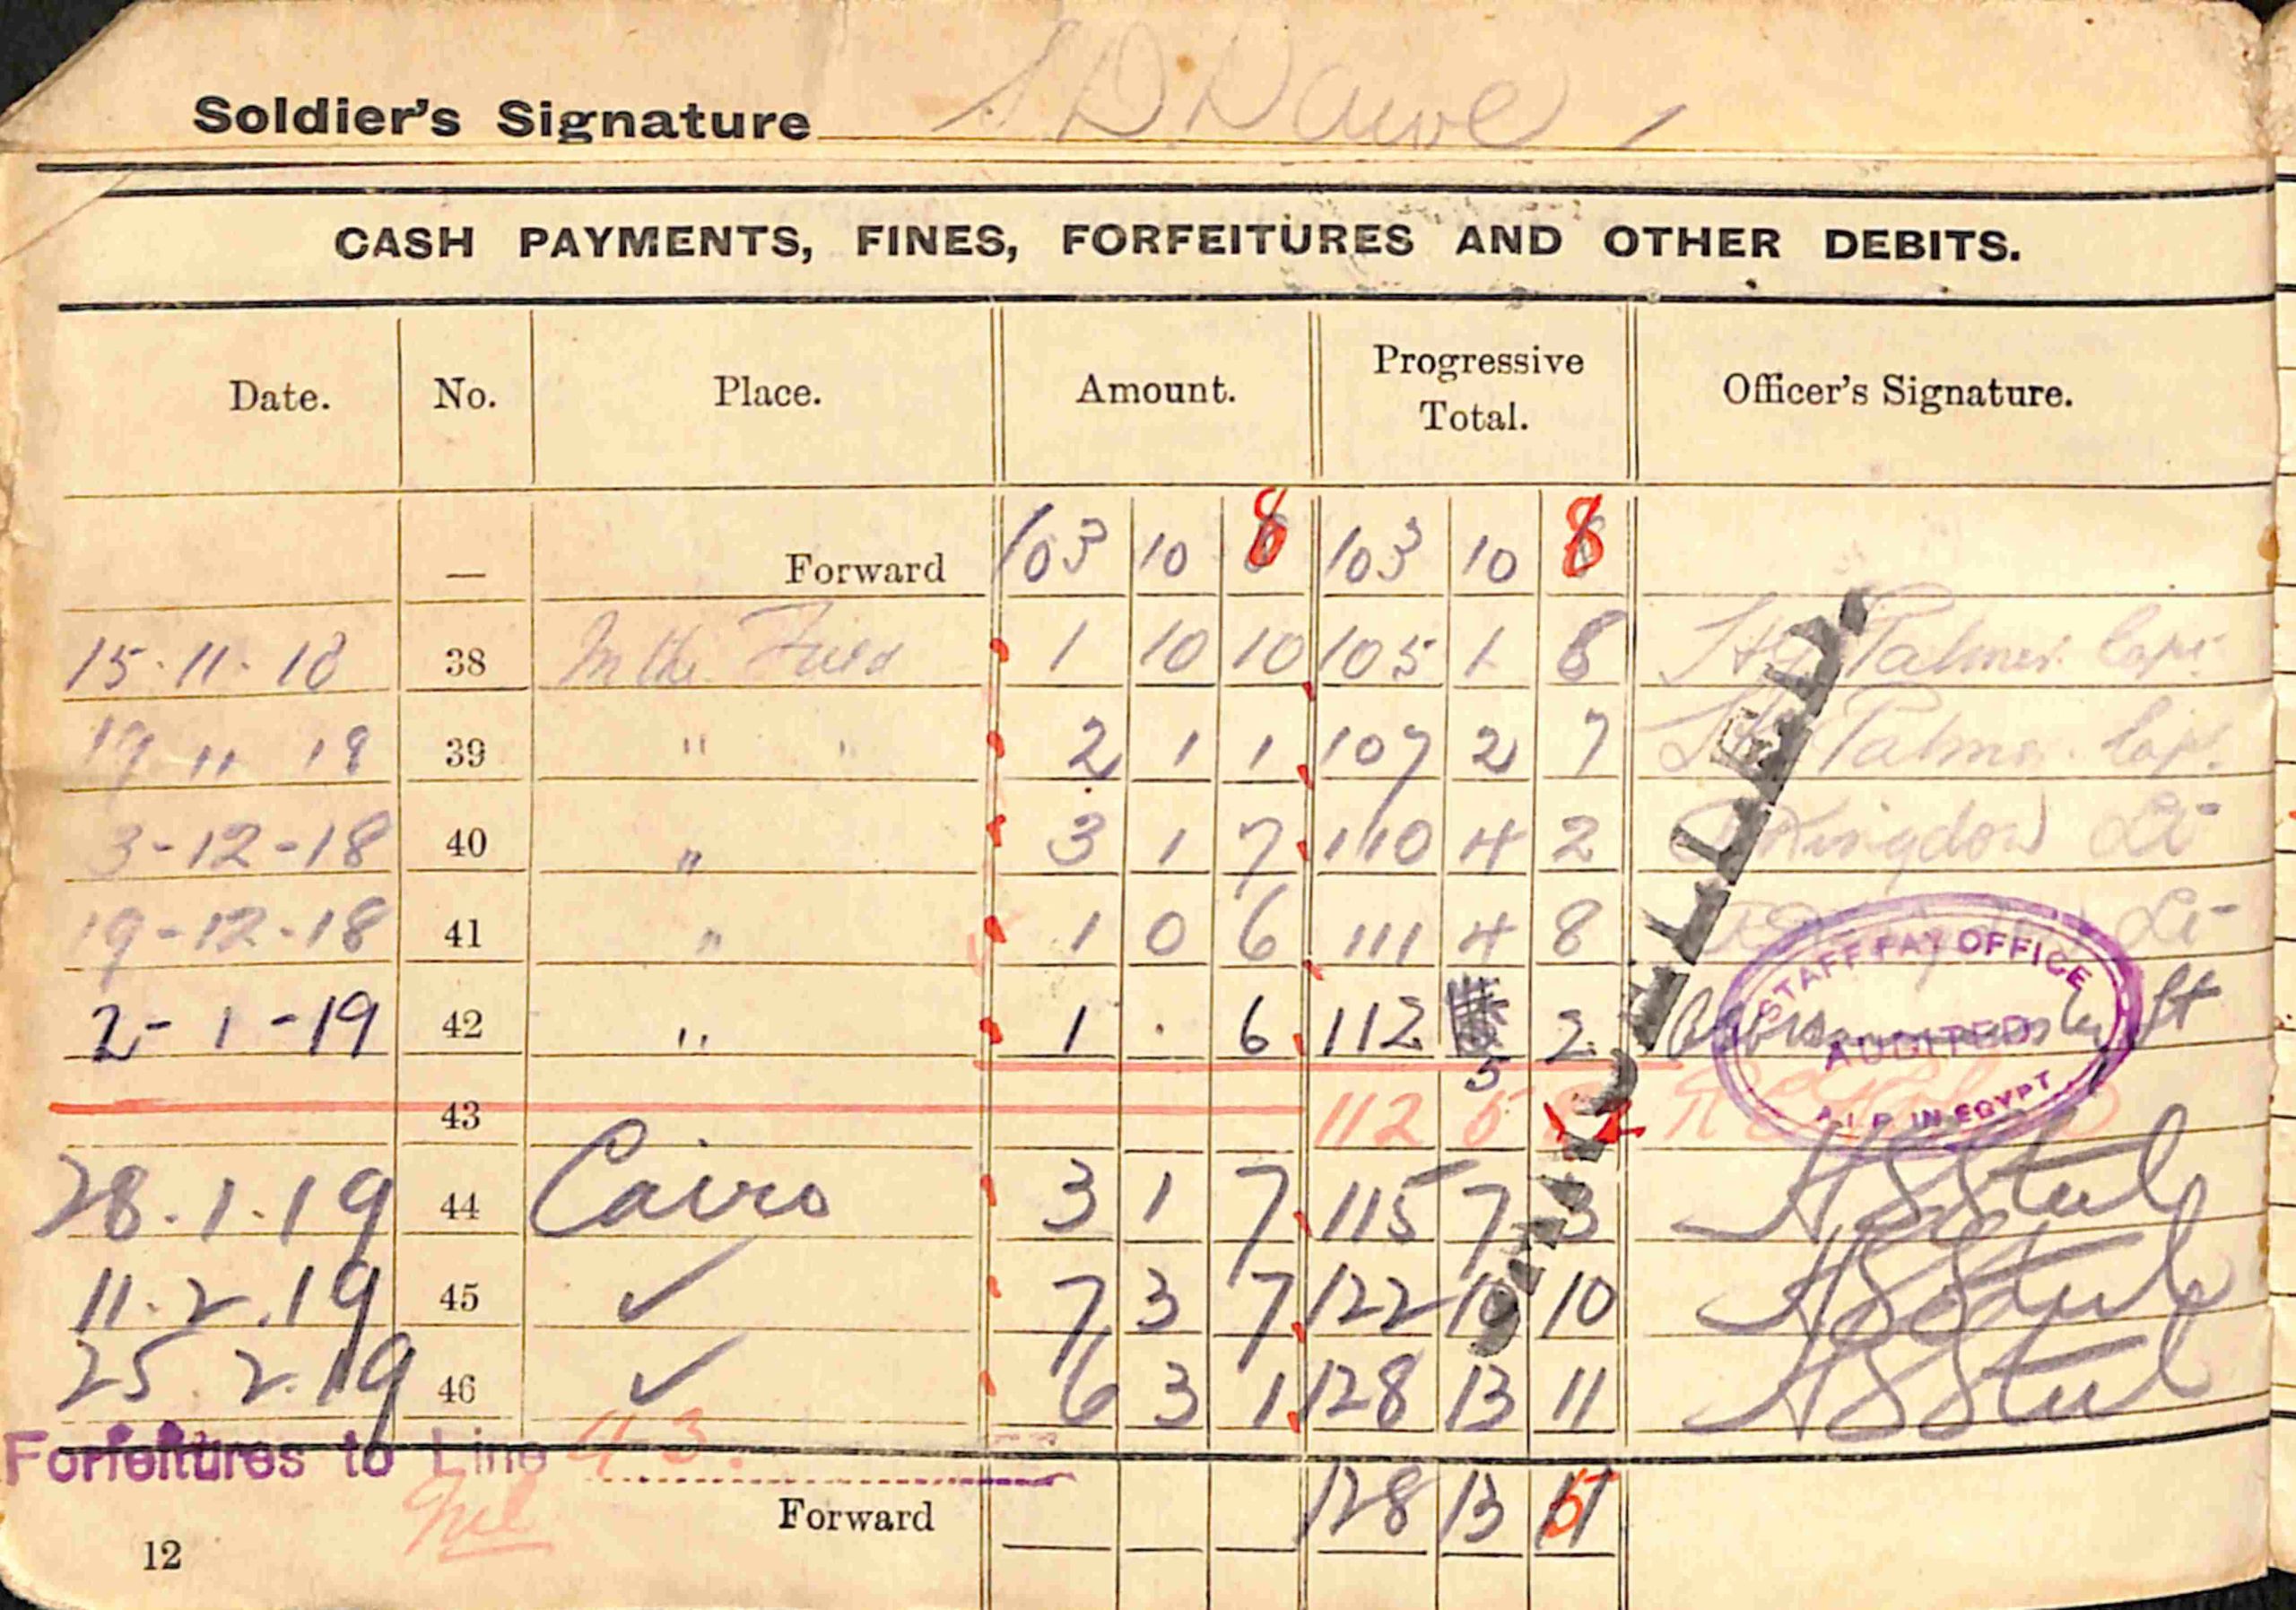 Soldier's Signature S D Dawe
CASH PAYMENTS, FINES, FORFEITURES AND OTHER DEBITS.
Date. No. Place. Amount. Progressive Total. Officer's Signature.
— Forward 103 10 8 103 10 8
15.11.18 38 In the Field 1 10 10 105 1 8 Palmer Capt.
19 11 18 39 " " 2 1 1 107 2 7 Palmer Capt.
3-12-18 40 " 3 1 7 110 4 2 Kingdon Lt
19-12-18 41 " 1 0 6 111 4 8 Lt
2-1-19 42 " 1 . 6 112 5 2 Lt
43 112 5
28.1.19 44 Cairo 3 1 7 115 7 3 Steel
11.2.19 45 ✓ 7 3 7 122 10 10 Steel
25.2.19 46 ✓ 6 3 1 128 13 11 Steel
CANCELLED.
STAFF PAY OFFICE
AUDITED
A.I.F. IN EGYPT
Forfeitures to Line 43.
Nil
Forward 128 13 11
12